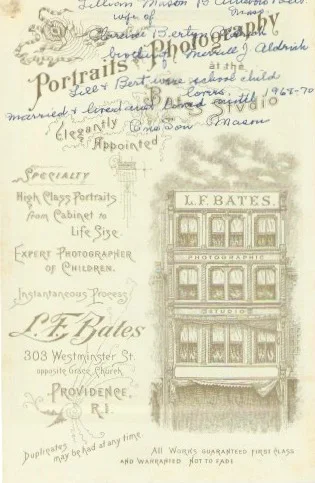 Lillian Mason B
wife of Mass.
Clarence Bertyn Aldrich
brother of Merrill J Aldrich
Portraits & Photography
at the
Lill & Bert were school child
lovers.
Bates Studio
Married & lived and loved until 1968-70
Elegantly
One Son Mason
Appointed
Specialty
High Class Portraits
from Cabinet to
Life Size.
Expert Photographer
of Children.
Instantaneous Process
L.F. Bates
303 Westminster St.
opposite Grace Church
Providence,
R.I.
Duplicates
may be had at any time
L.F. BATES.
PHOTOGRAPHIC
STUDIO
All Works guaranteed first class
and warranted not to fade